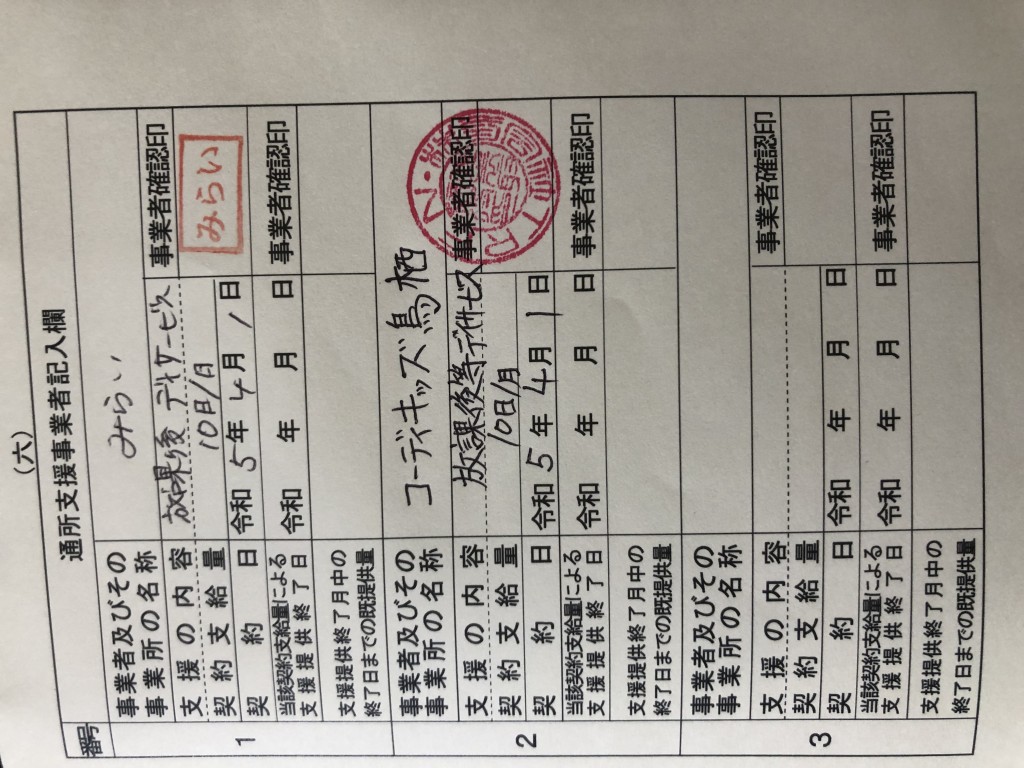 （六）
通所支援事業者記入欄
番号
1
事業者及びその
事業所の名称
みらい
支援の内容
放課後デイサービス
事業者確認印
契約支給量
10日/月
みらい
契約日
令和5年4月1日
当該契約支給量による
支援提供終了日
令和 年 月 日
事業者確認印
支援提供終了月中の
終了日までの既提供量
2
事業者及びその
事業所の名称
コーディキッズ鳥栖
支援の内容
放課後等デイサービス
事業者確認印
契約支給量
10日/月
契約日
令和5年4月1日
当該契約支給量による
支援提供終了日
令和 年 月 日
事業者確認印
支援提供終了月中の
終了日までの既提供量
3
事業者及びその
事業所の名称
支援の内容
事業者確認印
契約支給量
契約日
令和 年 月 日
当該契約支給量による
支援提供終了日
令和 年 月 日
事業者確認印
支援提供終了月中の
終了日までの既提供量